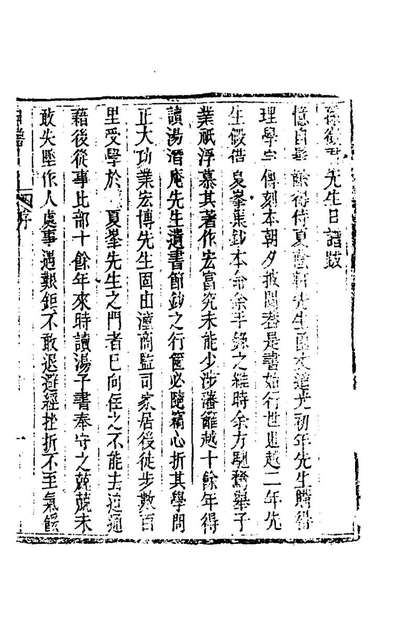 孫徵君先生日譜跋
憶自髫齡得侍夏先生道光初年先生購得
理學宗傳刻本朝夕披閱是書始行世越二年先
生假得夏峯集鈔本命余手錄之維時余方馳騖舉子
業祇浮慕其著作宏富究未能少涉藩籬越十餘年得
讀湯潛庵先生遺書節鈔之行篋必隨竊心折其學問
正大功業宏博先生固由潼商監司家居後徒步數百
里受學於夏峯先生之門者已向往之不能去迨通
籍後從事比部十餘年來時讀湯子書奉守之兢兢未
敢失墜作人處事遇艱鉅不敢退避經挫折不至氣餒
序